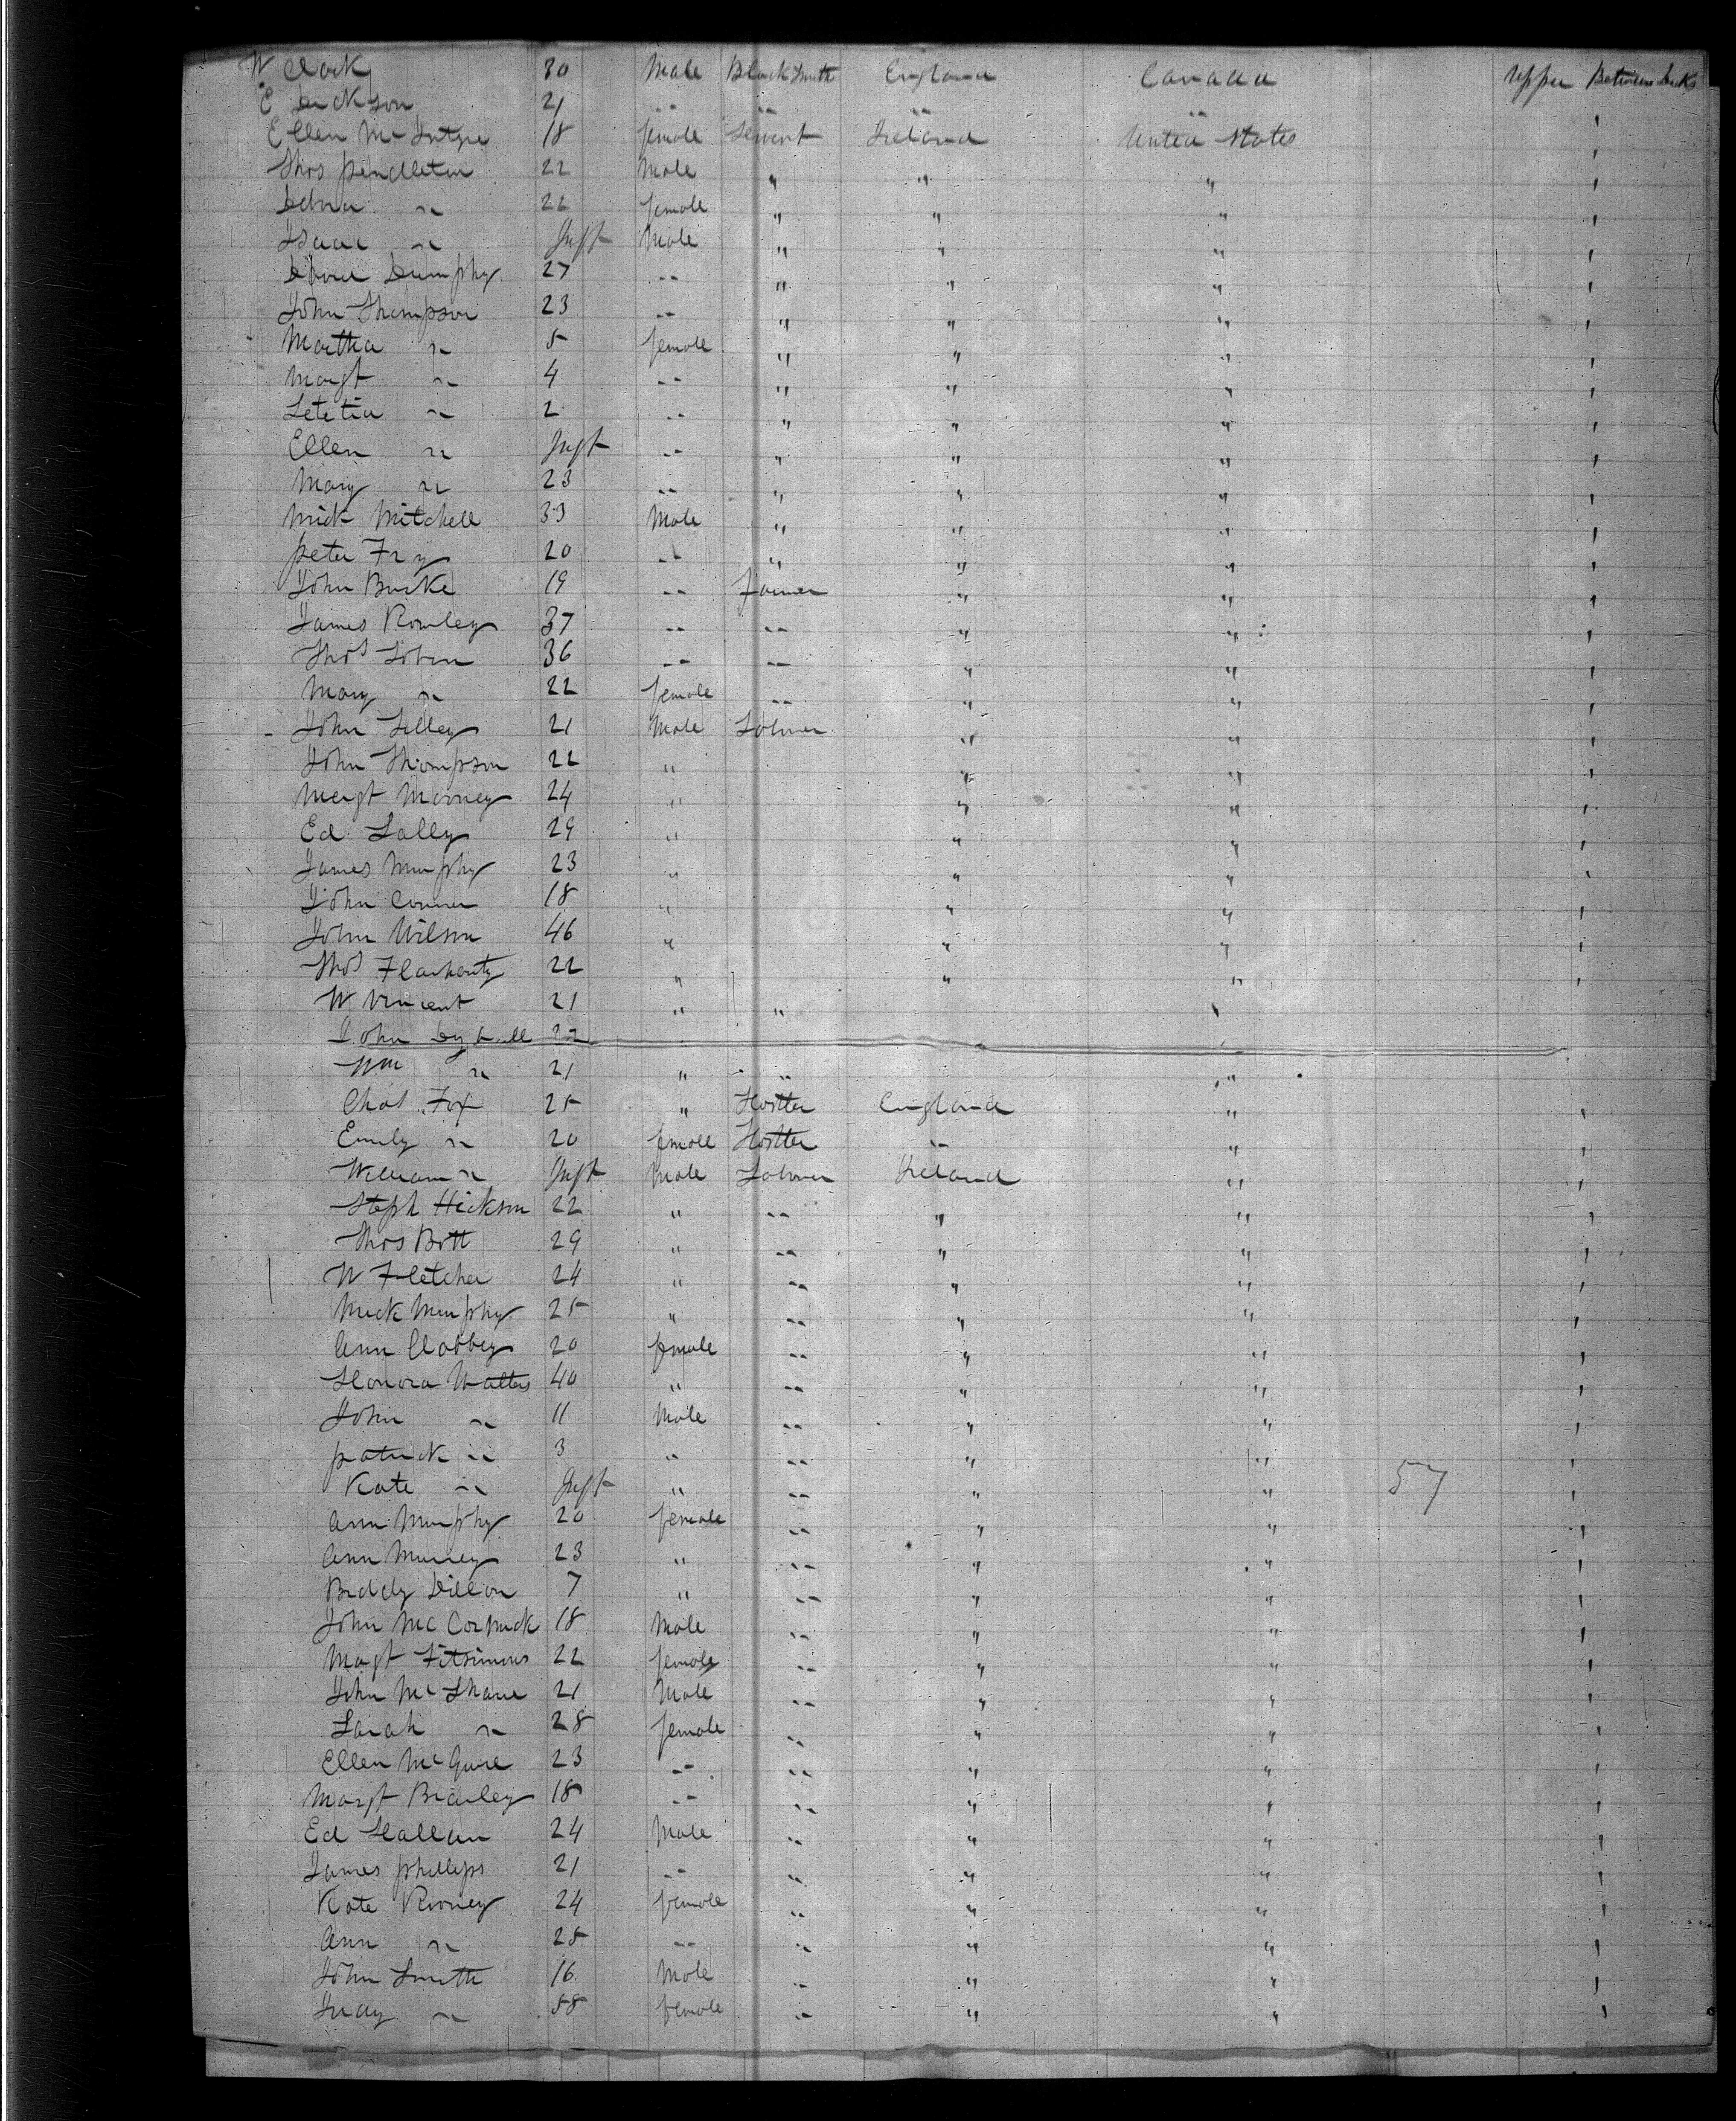 W Clark 30 Male Black Smith England Canada Upper Between Decks
E Dickson 21 -- -- -- --
Ellen Mc Intyre 18 female Servent Ireland United States '
Thos Pendleton 22 Male " " " '
22 female " " " '
Isaac " Inft Male " " " '
Dumphy 27 -- " " " '
John Thompson 23 -- " " " '
Martha " 5 female " " " '
Margt " 4 -- " " " '
Letetia " 2 -- " " " '
Ellen " Inft -- " " " '
Mary " 23 -- " " " '
Mick Mitchell 33 Male " " " '
Peter Fry 20 -- " " " '
John Burke 19 -- Farmer " " '
James Rowley 37 -- -- " " '
Thos Tobin 36 -- -- " " '
Mary " 22 female -- " " '
John Lilley 21 Male Labourer " " '
John Thompson 22 " " " '
Margt Mooney 24 " " " '
Ed Lally 29 " " " '
James Murphy 23 " " " '
John Conner 18 " " " '
John Wilson 46 " " " '
Thos Flarhouty 22 " " " '
W Vincent 21 " "
John 22
Wm " 21 " " "
Chas Fox 25 " Hatter England " '
Emily " 20 female Hatter -- " '
William " Inft Male Labourer Ireland " '
Steph Hickson 22 " -- " " '
Thos Bott 29 " -- " " '
W Fletcher 24 " -- " " '
Mick Murphy 25 " -- " " '
Ann Clabbey 20 female -- " " '
Honora Walters 40 " -- " " '
John " 11 Male -- " " '
Patrick " 3 " -- " " '
Kate " Inft " -- " " 57 '
Ann Murphy 20 female -- " " '
Ann Murrey 23 " -- " " '
Biddy Dillon 7 " -- " " '
John Mc Cormick 18 Male -- " " '
Magt Fitsimons 22 female -- " " '
John Mc Shane 21 Male -- " " '
Sarah " 28 female -- " " '
Ellen Mc Guire 23 -- -- " " '
Margt Brawley 18 -- -- " " '
Ed Hallan 24 Male -- " " '
James Phillips 21 -- -- " " '
Kate Rooney 24 female -- " " '
Ann " 25 -- -- " " '
John Smith 16 Male -- " " '
" 58 female -- " " '